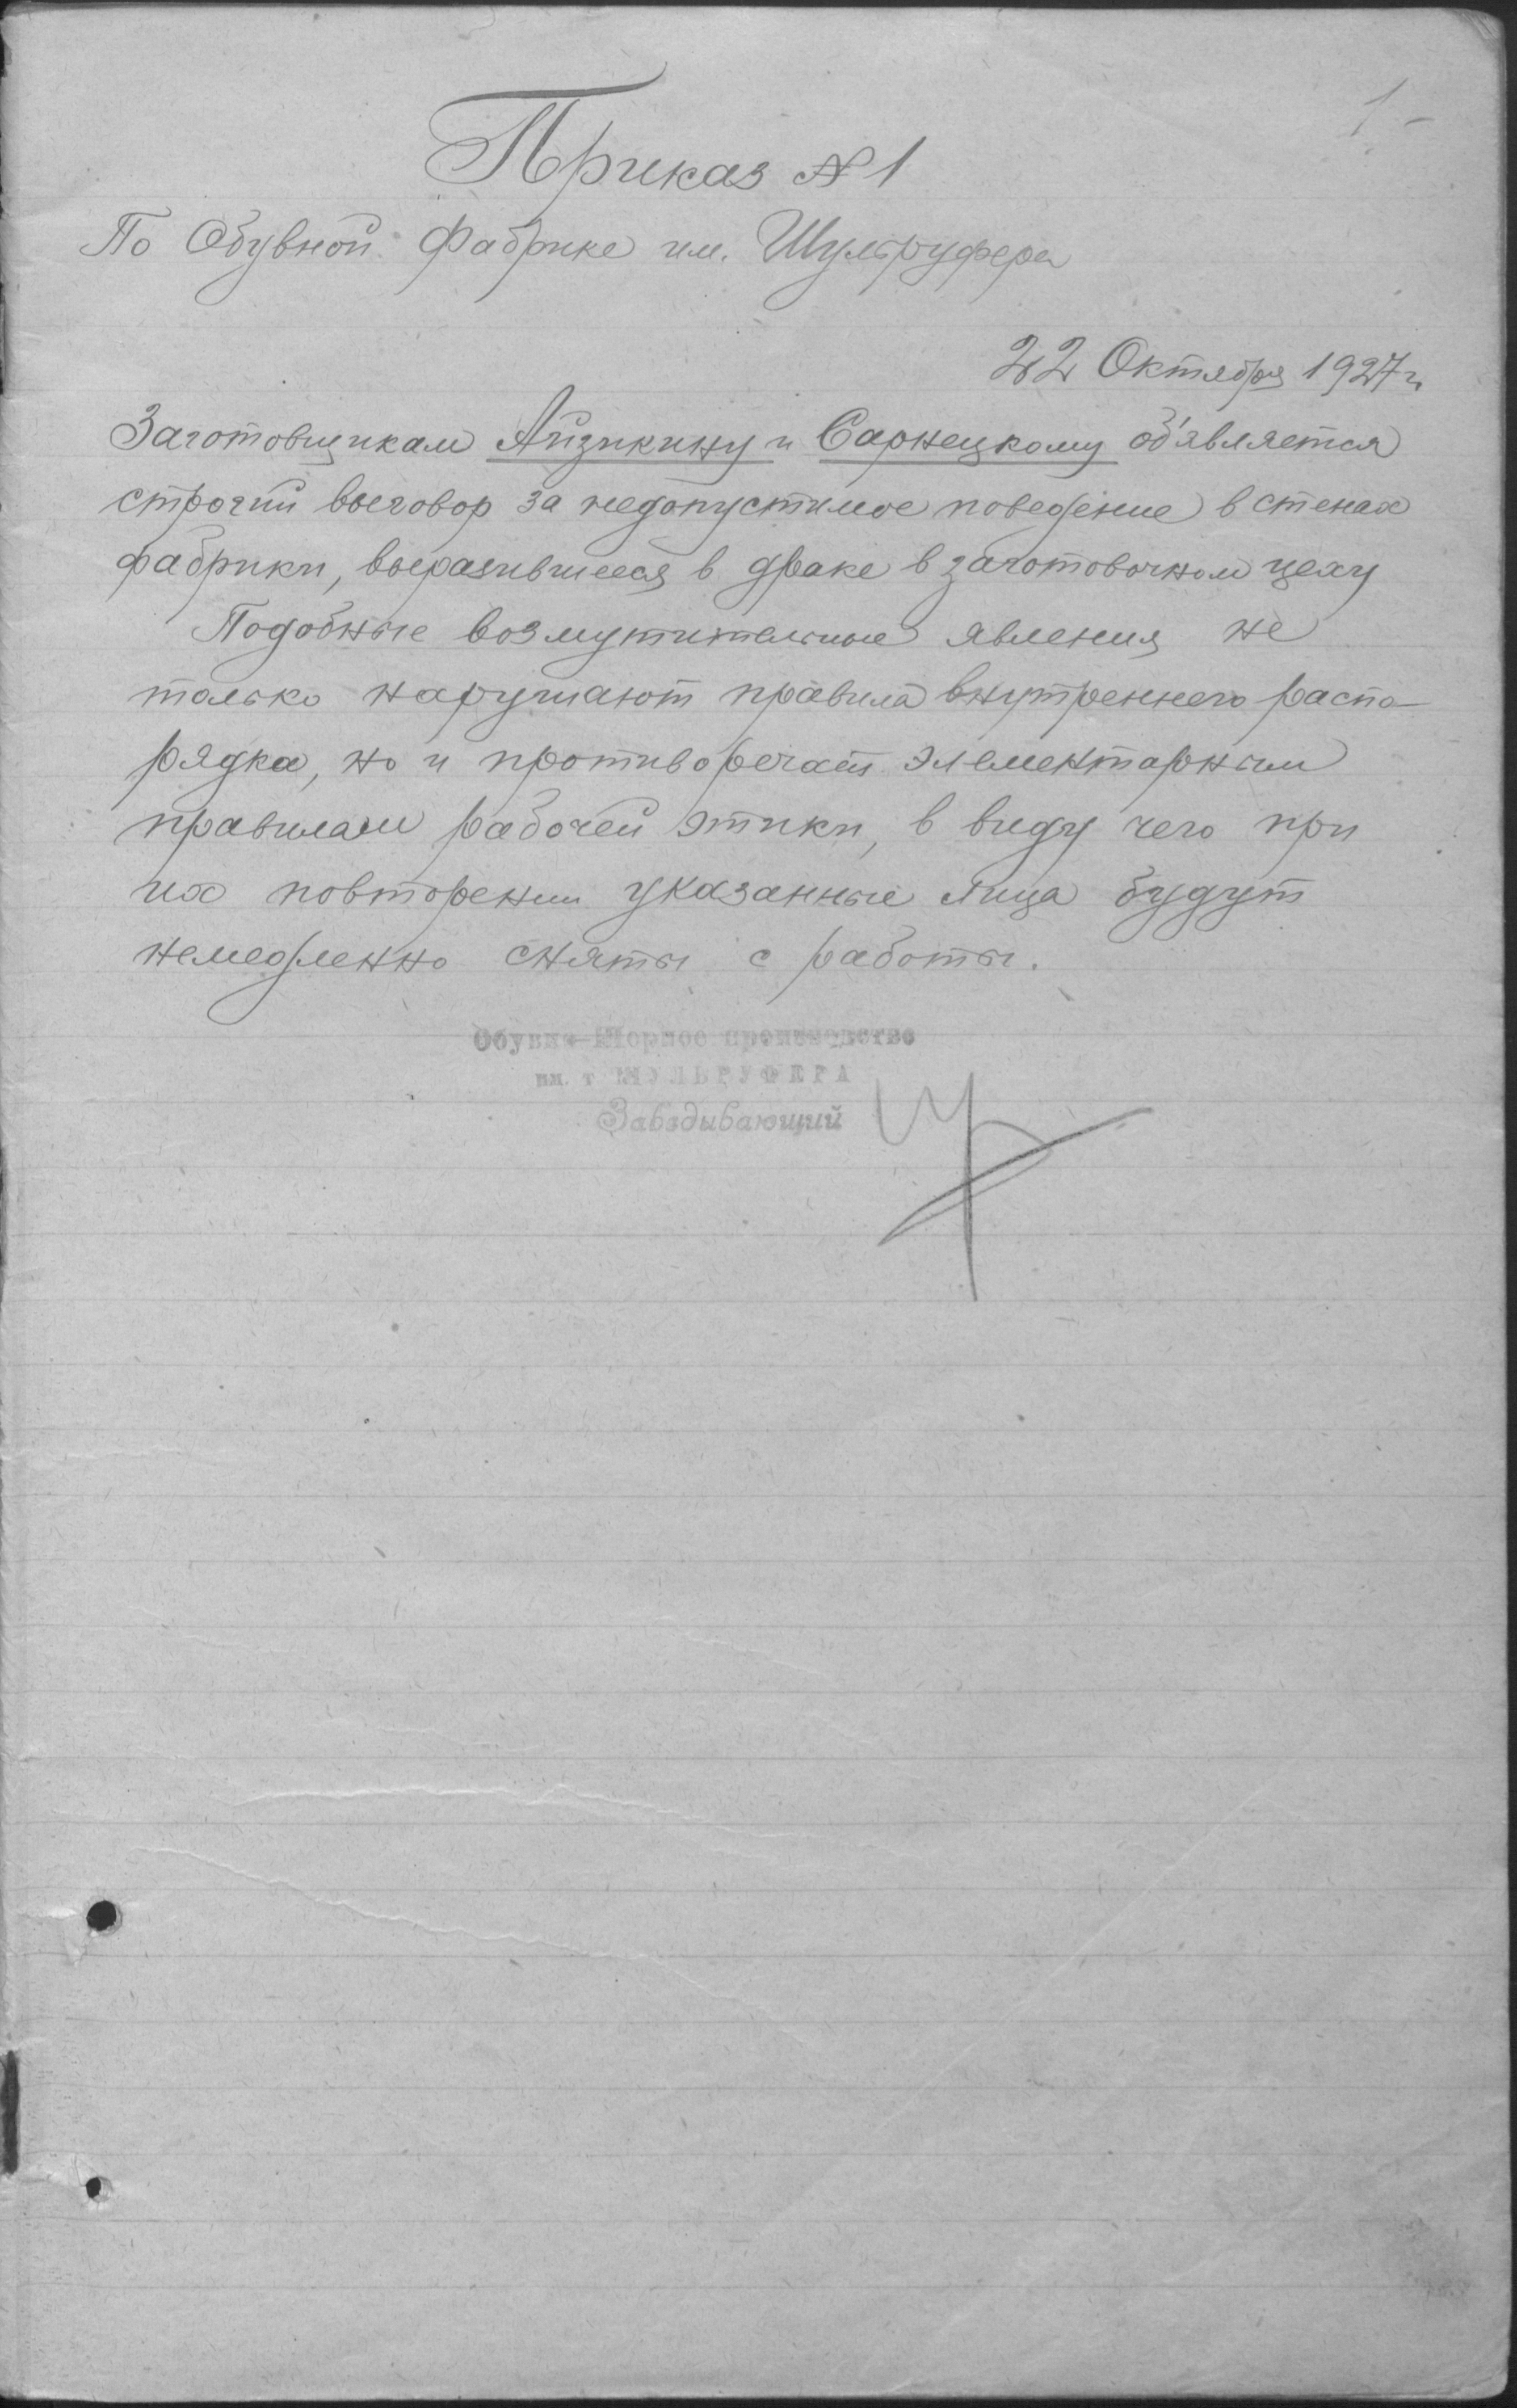 1-
Приказ № 1
По Обувной Фабрике им. Шульруфера
22 Октября 1927 г.
Заготовщикам Айзикину и Сарнецкому об'является
строгий выговор за недопустимое поведение в стенах
фабрики, выразившееся в драке в заготовочном цеху
Подобные возмутительные явления не
только нарушают правила внутреннего распо-
рядка, но и противоречат элементарным
правилам рабочей этики, в виду чего при
их повторении указанные лица будут
немедленно сняты с работы.
производство
им. т ШУЛЬРУФЕРА
Заведывающий